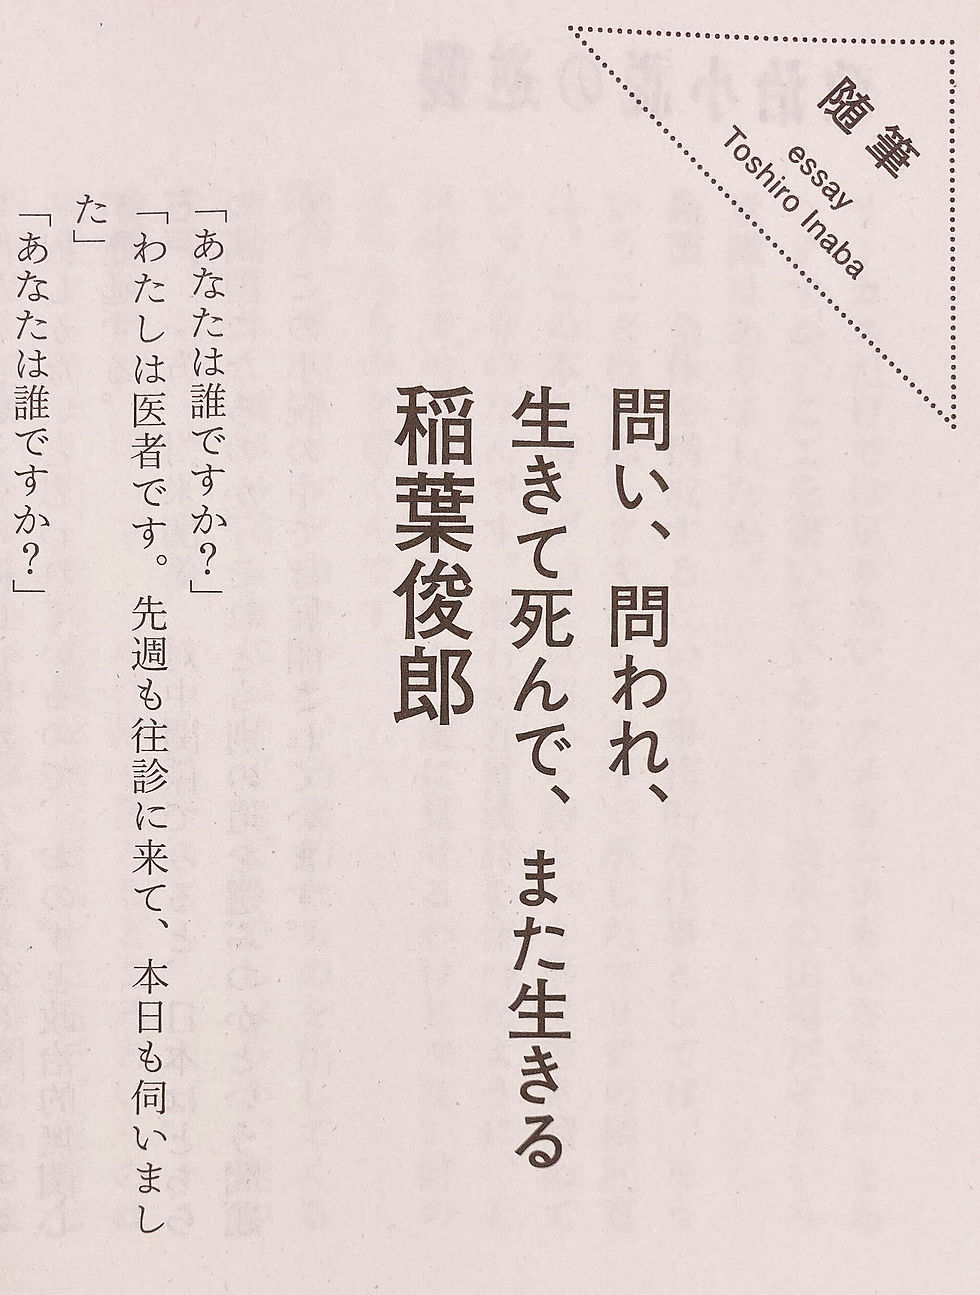 随筆
essay
Toshiro Inaba
問い、問われ、
生きて死んで、また生きる
稲葉俊郎
「あなたは誰ですか?」
「わたしは医者です。先週も往診に来て、本日も伺いまし
た」
「あなたは誰ですか?」